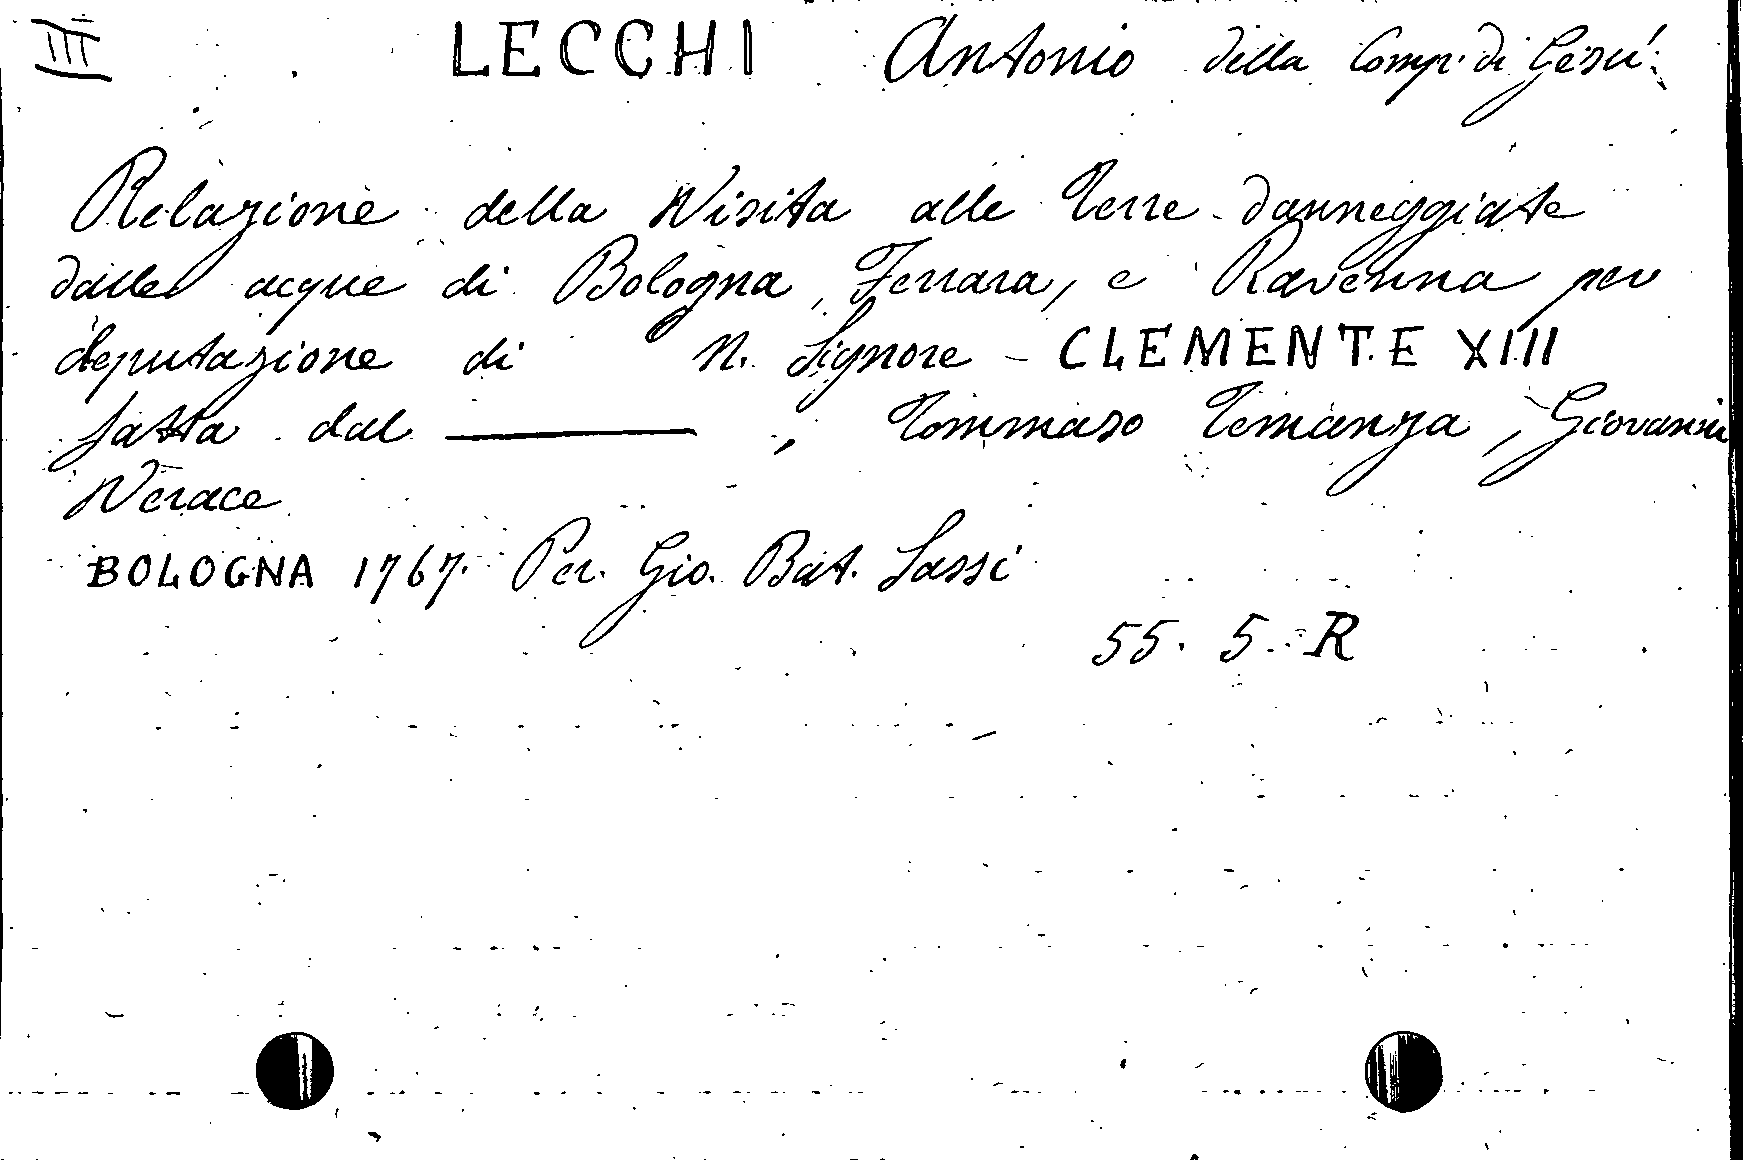 III LECCHI Antonio della Comp. di Gesú.
Relazione della Visita alle Terre danneggiate
dalle acque di Bologna, Ferrara, e Ravenna per
deputazione di N. Signore - CLEMENTE XIII
fatta dal ———, Tommaso Temanza, Giovanni
Verace
BOLOGNA 1767. Per. Gio. Bat. Sassi
55. 5. R